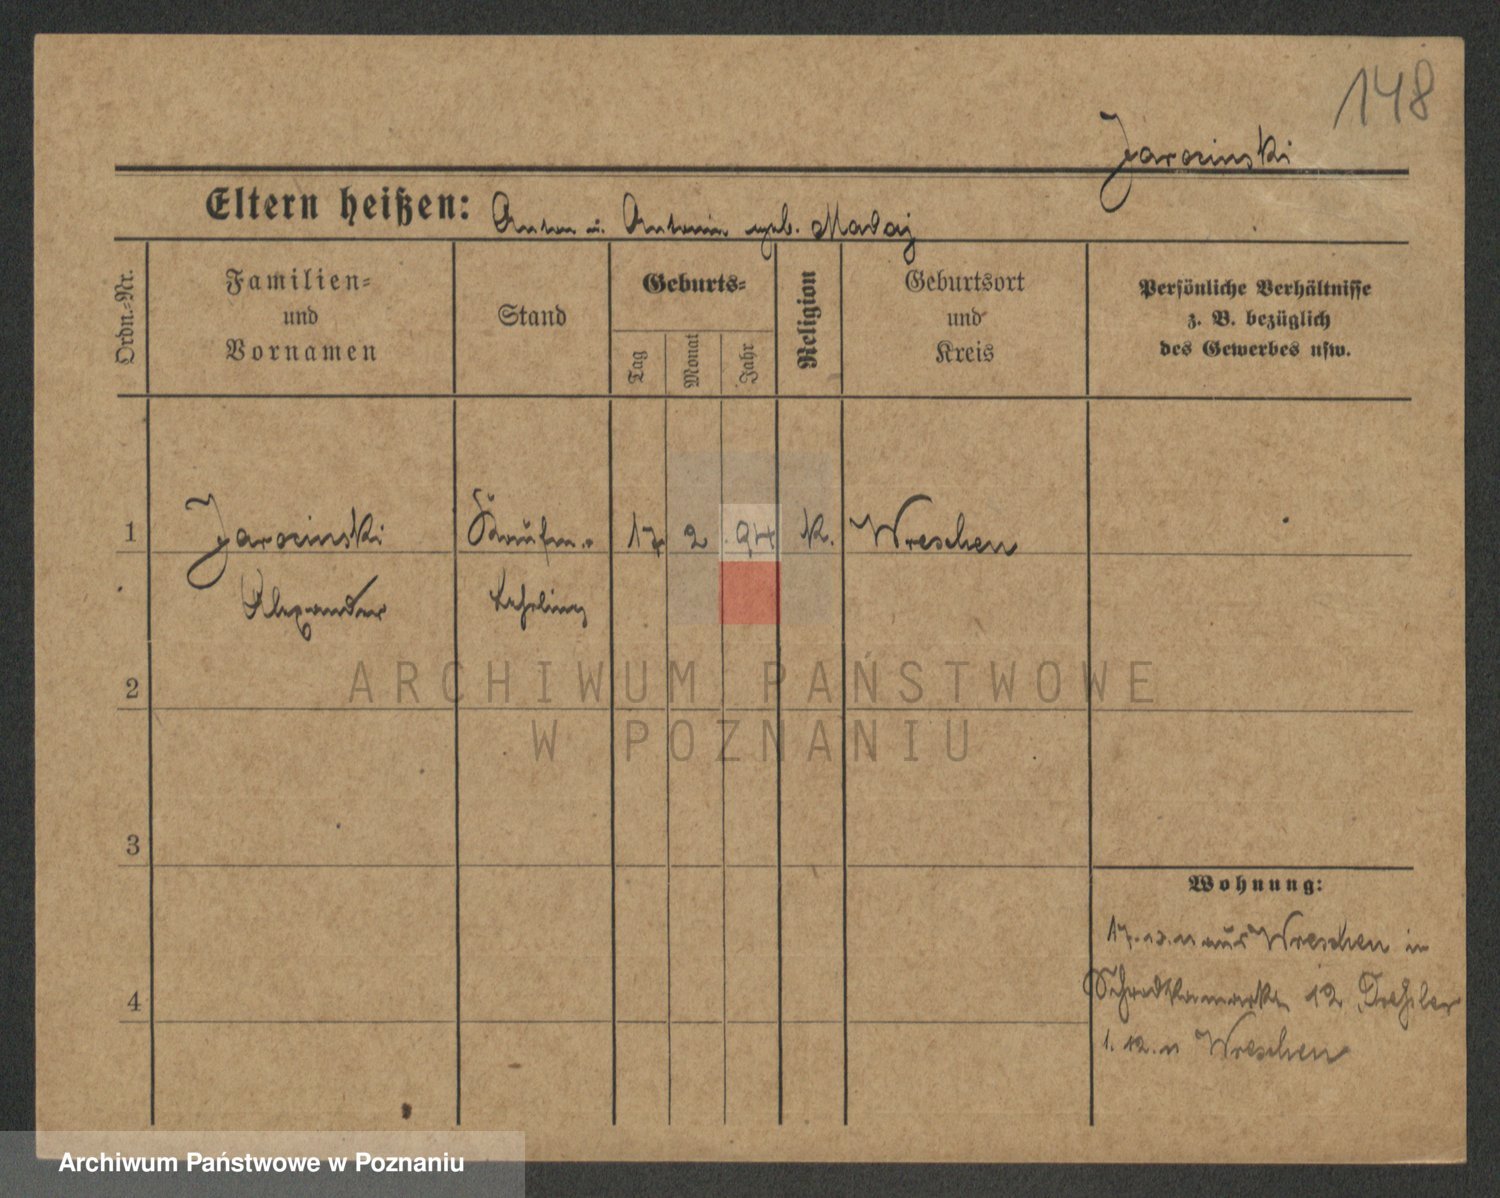 148
Jarocinski
Eltern heißen: Anton u. Antonie geb. Maday
Ordn.-Nr.
Familien-
und
Vornamen
Stand
Geburts-
Tag
Monat
Jahr
Religion
Geburtsort
und
Kreis
Persönliche Verhältnisse
z. B. bezüglich
des Gewerbes usw.
1 Jarocinski Kaufm.- 17. 2 94 K. Wreschen
Alexander Lehrling
ARCHIWUM PAŃSTWOWE
2
W POZNANIU
3
Wohnung:
aus Wreschen in
4
12
1. 12. 11 Wreschen
Archiwum Państwowe w Poznaniu